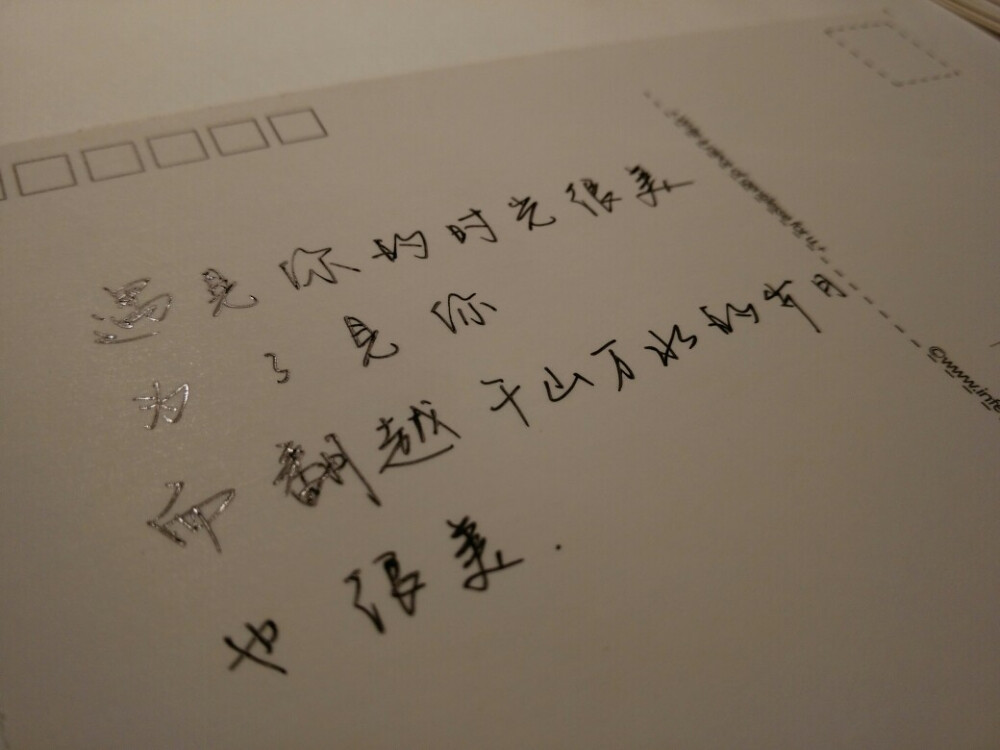 遇见你的时光很美
为了见你
而翻越千山万水的岁月
也很美.
©www.infe